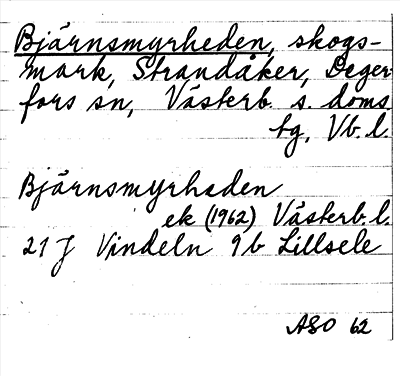 Bjärnsmyrheden, skogs-
mark, Strandåker, Deger-
fors sn, Västerb. s. doms
tg, Vb. l.
Bjärnsmyrheden
ek (1962) Västerb. l.
21 J Vindeln 9b Lillsele
ASO 62